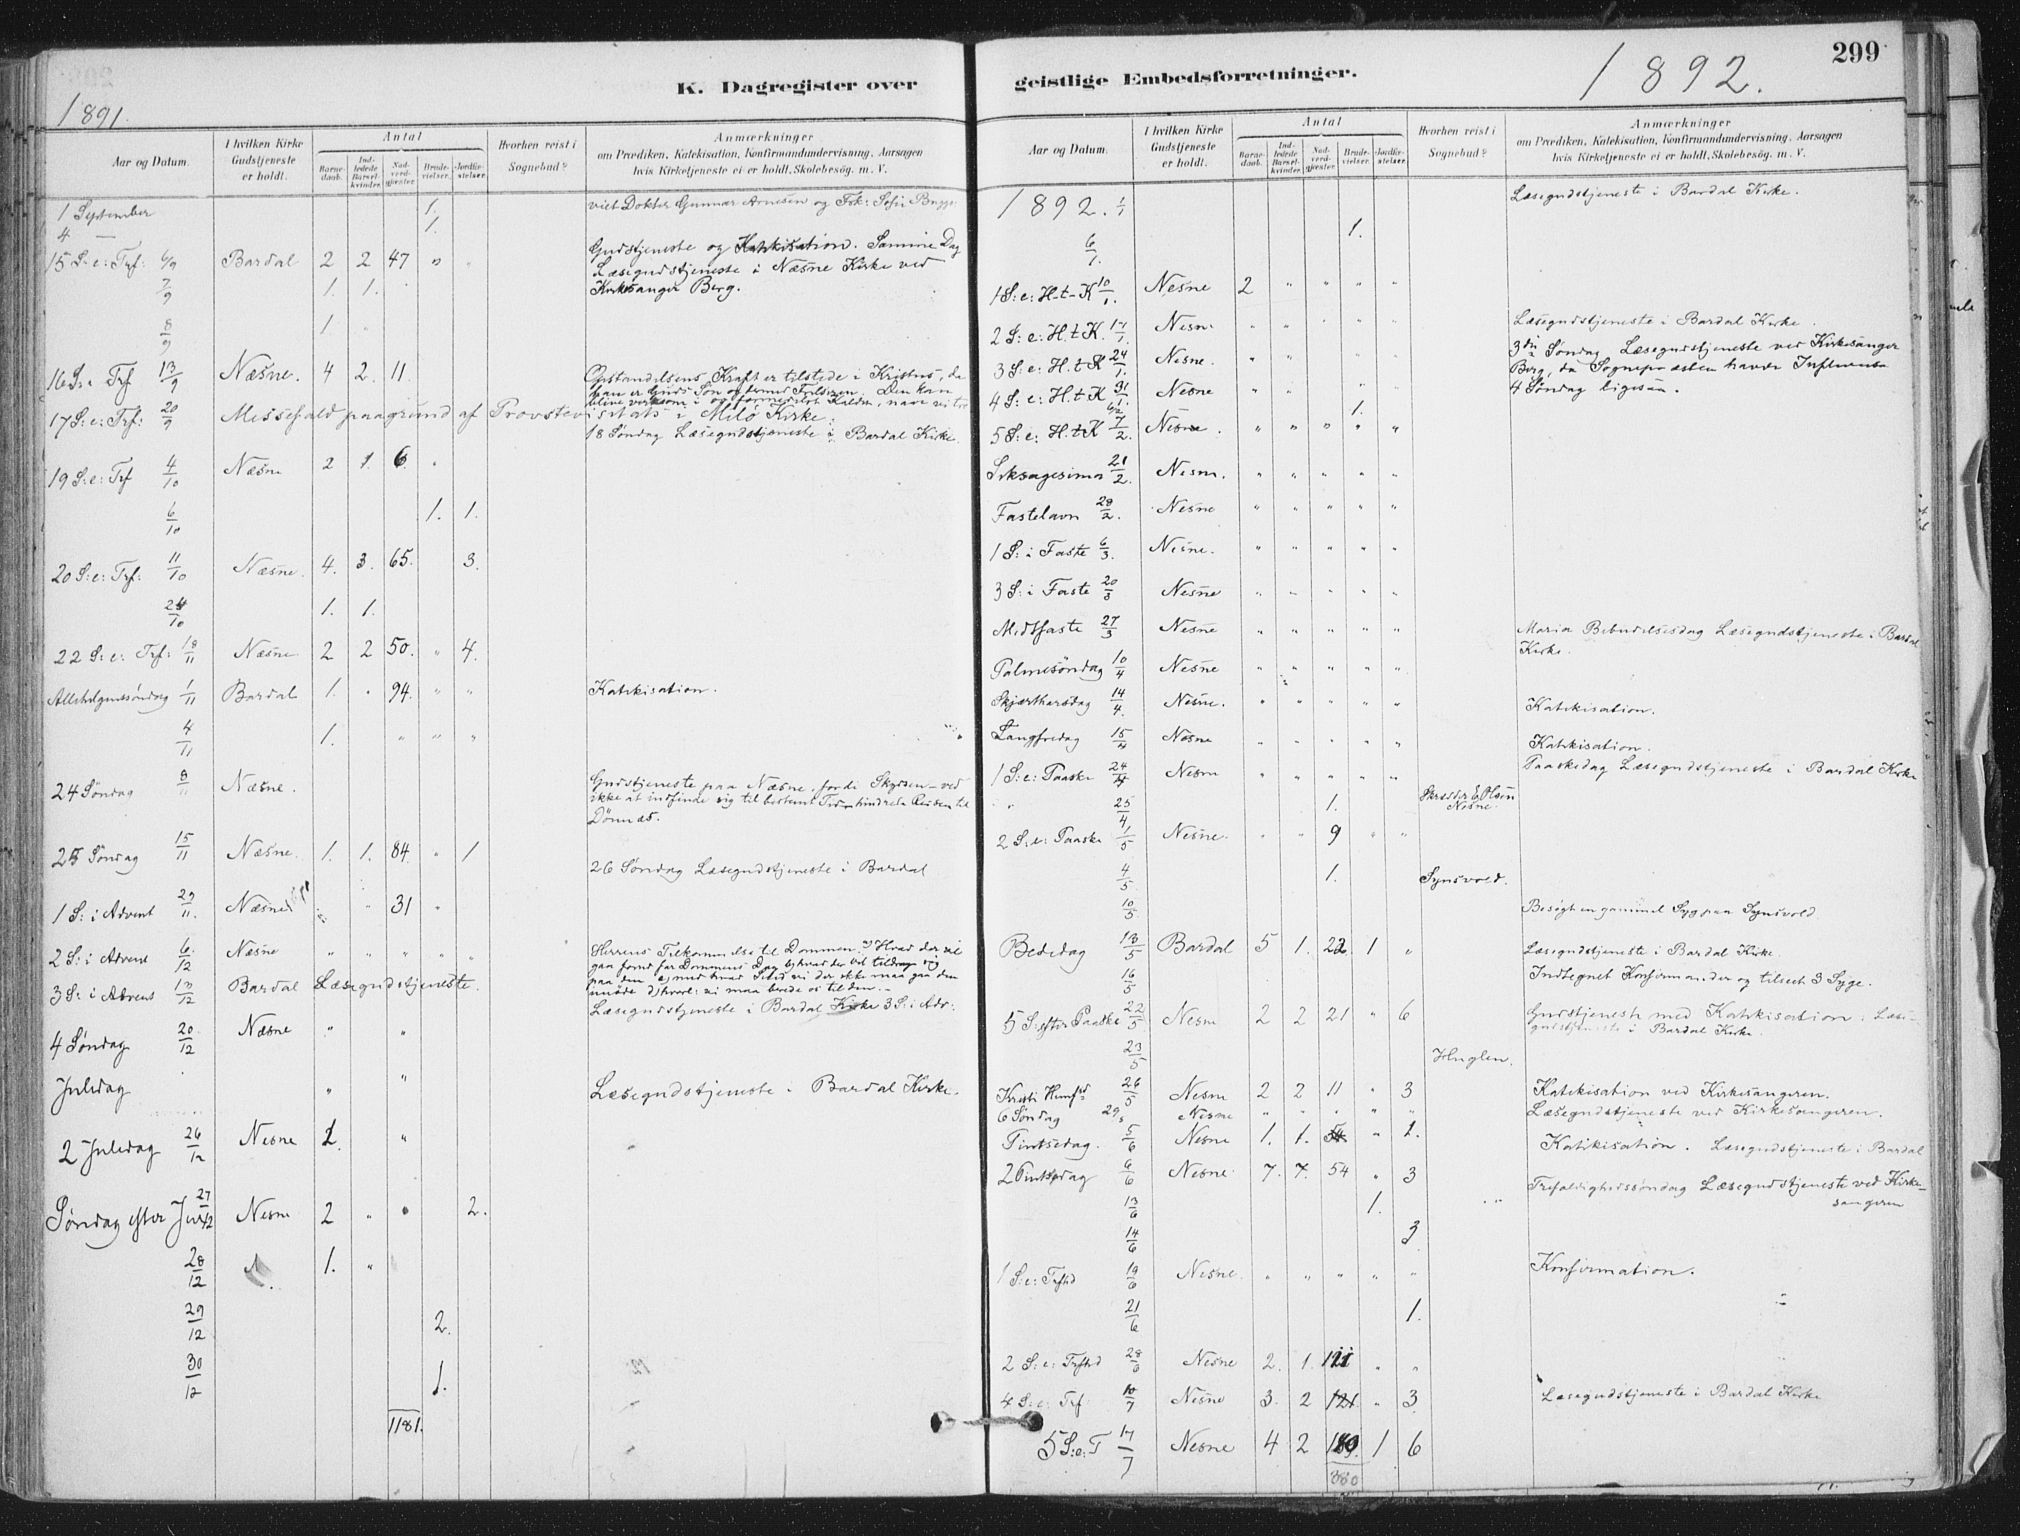 299
K. Dagregister over geistlige Embedsforretninger.
1891.
1892.
Aar og Datum.
I hvilken Kirke Gudstjeneste er holdt.
Antal
Barnedaab.
Indledede Barselkvinder.
Nadverdgjester
Brudevielser.
Jordfæstelser.
Hvorhen reist i Sognebud?
Anmærkninger
om Prædiken, Katekisation, Konfirmandundervisning, Aarsagen
hvis Kirketjeneste ei er holdt, Skolebesøg. m. V.
1 September 1. viet Doktor Gunnar Arnesen og Frk: Sofie
4 — 1.
15 S: e: Trf: 6/9 Bardal 2 2 47 " " Gudstjeneste og Katekisation. Samme Dag
Læsegudstjeneste i Næsne Kirke ved
7/9 1. 1. Kirkesanger Berg.
8/9 1. "
16 S: e Trf 13/9 Næsne. 4 2. 11. Opstandelsens Kraft er tilstede i Kristus, da
han er Guds Søn og
17 S: e: Trf: 20/9 Messefald paa grund af Provstevisitats i Kirke
18 Søndag Læsegudstjeneste i Bardal Kirke
19 S: e: Trf 4/10 Næsne 2 1. 6. "
6/10 1. 1.
20 S: e: Trf: 11/10 Næsne. 4. 3. 65. 3.
24/10 1. 1.
22 S: e: Trf: Næsne 2 2 50. " 4.
Allehelgenssøndag 1/11 Bardal 1. " 94. " " Katekisation.
4/11 1. " " "
24 Søndag 8/11 Næsne. Gudstjeneste paa Næsne, fordi Skydsen – ved
ikke at indfinde sig til bestemt Tid – hindrede Reisen til
Dönnæs.
25 Søndag 15/11 Næsne. 1. 1. 84. " 1
26 Søndag Læsegudstjeneste i Bardal
1 S: i Advent 29/11. Næsne " 31 "
2 S: i Advent 6/12 Næsne " " " " " Herrens Tilkommelse til Dommen. Hvad der vil
gaa forud for Dommens Dag
3 S: i Advent 13/12 Bardal Læsegudstjeneste.
Læsegudstjeneste i Bardal Kirke 3 S: i Adv:
4 Søndag 20/12 Næsne " "
Juledag " " Læsegudstjeneste i Bardal Kirke.
2 Juledag 26/12 Nesne 2. "
Søndag efter Jul 27/12 Nesne 2 " " 2.
28/12 1. "
29/12 2.
30/12 1.
1181.
Aar og Datum.
I hvilken Kirke Gudstjeneste er holdt.
Antal
Barnedaab.
Indledede Barselkvinder.
Nadverdgjester
Brudevielser.
Jordfæstelser.
Hvorhen reist i Sognebud?
Anmærkninger
om Prædiken, Katekisation, Konfirmandundervisning, Aarsagen
hvis Kirketjeneste ei er holdt, Skolebesøg. m. V.
1892. 1/1 Læsegudstjeneste i Bardal Kirke.
6/1. 1.
1 S: e: H-t-K 10/1. Nesne 2 " " " "
2 S: e: H.t K. 17/1. Nesne " " " " " Læsegudstjeneste i Bardal Kirke.
3 S: e: H.t K 24/1. Nesne. " " " " 3die Søndag Læsegudstjeneste ved Kirkesanger
Berg, da Sognepræsten havde Influensa
4 S: e: H.t K 31/1. Nesne " " " " " 4 Søndag ligesaa.
6/2 1.
5 S: e: H.t K 7/2. Nesne. " " " " "
Seksagesima 21/2. Nesne. " " " " "
Fastelavn 28/2. Nesne " " " " "
1 S: i Faste 6/3. Nesne. " " " " "
3 S: i Faste 20/3 Nesne " " " " "
Midtfaste 27/3 Nesne " " " " " Maria Bebudelsesdag Læsegudstjeneste i Bardal
Kirke.
Palmesøndag 10/4 Nesne " " " " "
Skjærthorsdag 14/4. Nesne. " " " " " Katekisation.
Langfredag 15/4 Nesne " " " " " Katekisation.
Paaskedag Læsegudstjeneste i Bardal Kirke
1 S: e: Paaske 24/4 Nesne " " " " "
" 25/4 1. Skræder E. Olsen
Nesne.
2 S: e: Paaske 1/5 Nesne. " " 9 " "
4/5. 1. Synsvold.
10/5. Besøgt en gammel Syg paa Synsvold.
Bededag 13/5 Bardal 5 1. 22. 1 " Læsegudstjeneste i Bardal Kirke.
16/5 Indtegnet Konfirmander og tilseet 3 Syge.
5 S: efter Paaske 22/5 Nesne 2 2 21 " 6 Gudstjeneste med Katekisation. Læsegudstjeneste i Bardal Kirke.
23/5 Huglen.
Kristi Himfd 26/5 Nesne 2 2 11 " 3 Katekisation ved Kirkesangeren.
6 Søndag 29/5 Nesne " " " " " Læsegudstjeneste ved Kirkesangeren.
Pintsedag. 5/6 Nesne 1. 1. " 1. Katekisation. Læsegudstjeneste i Bardal
2 Pintsedag 6/6 Nesne. 7. 7. 54 " 3
Trefoldighedssøndag Læsegudstjeneste ved Kirkesangeren
13/6 1.
14/6 3.
1 S: e: Trfhd 19/6 Nesne. " " " " " Konfirmation.
21/6 1.
2 S: e: Trfhd 28/6 Nesne 2. 1. " "
4 S: e: Trf 10/7 Nesne 3. 2 " 3. Læsegudstjeneste i Bardal Kirke
5 S: e: T 17/7 Nesne 4 2 1 6
380